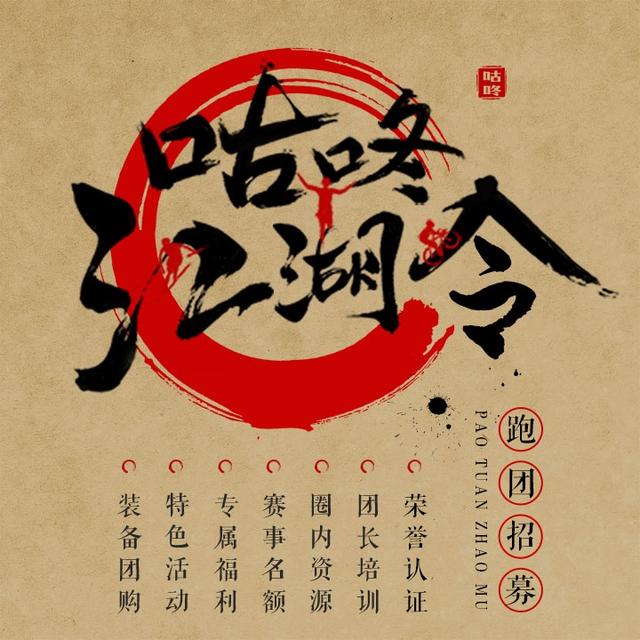 咕咚
江湖令
咕咚
跑团招募
PAO TUAN ZHAO MU
荣誉认证
团长培训
圈内资源
赛事名额
专属福利
特色活动
装备团购